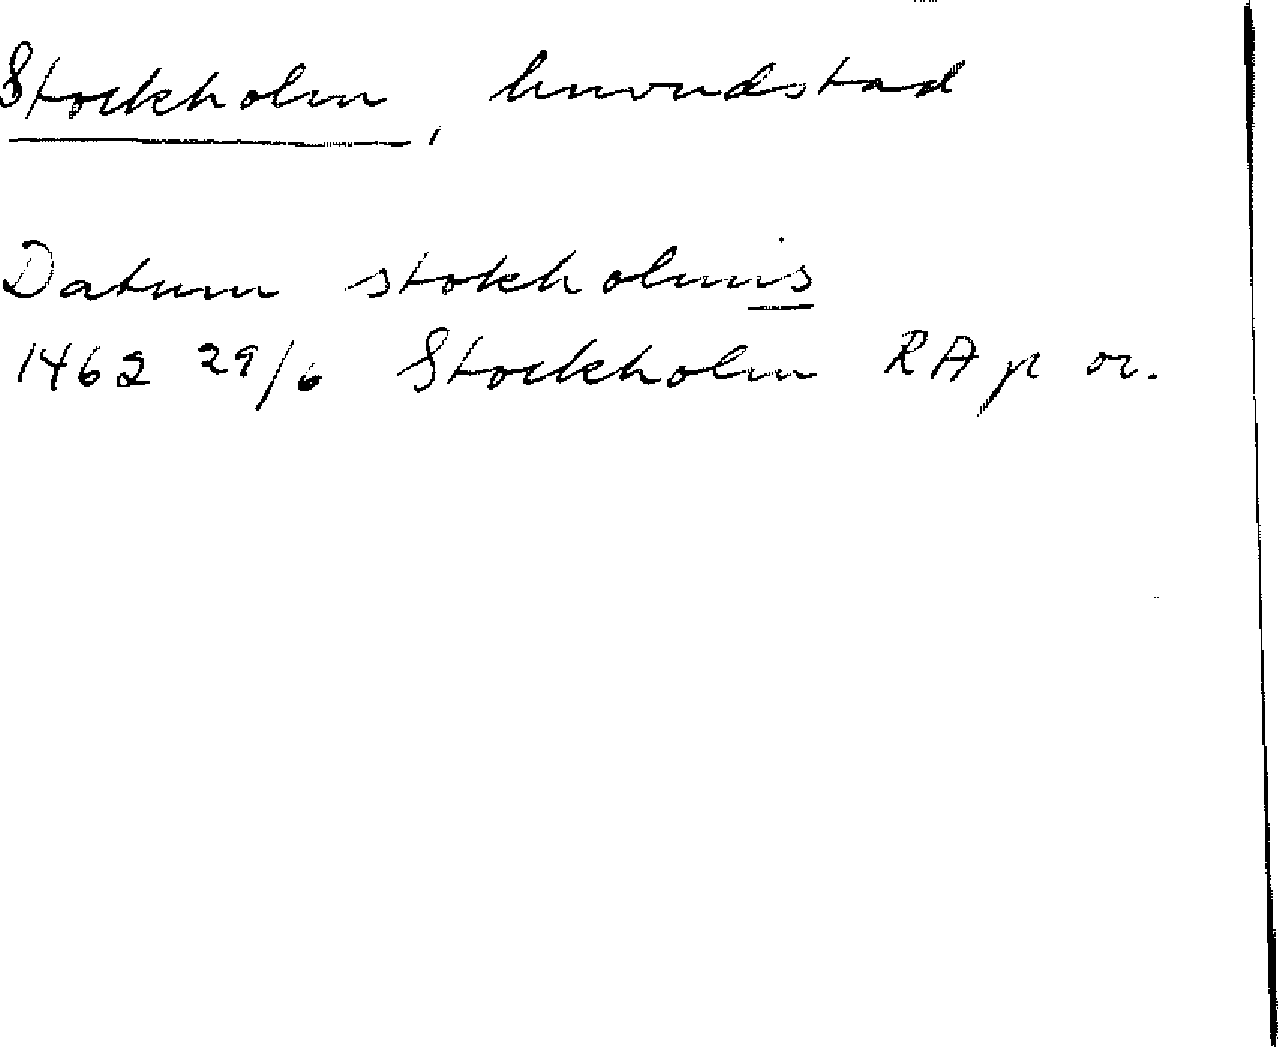 Stockholm, huvudstad
Datum stokholmis
1462 29/6 Stockholm RA p or.